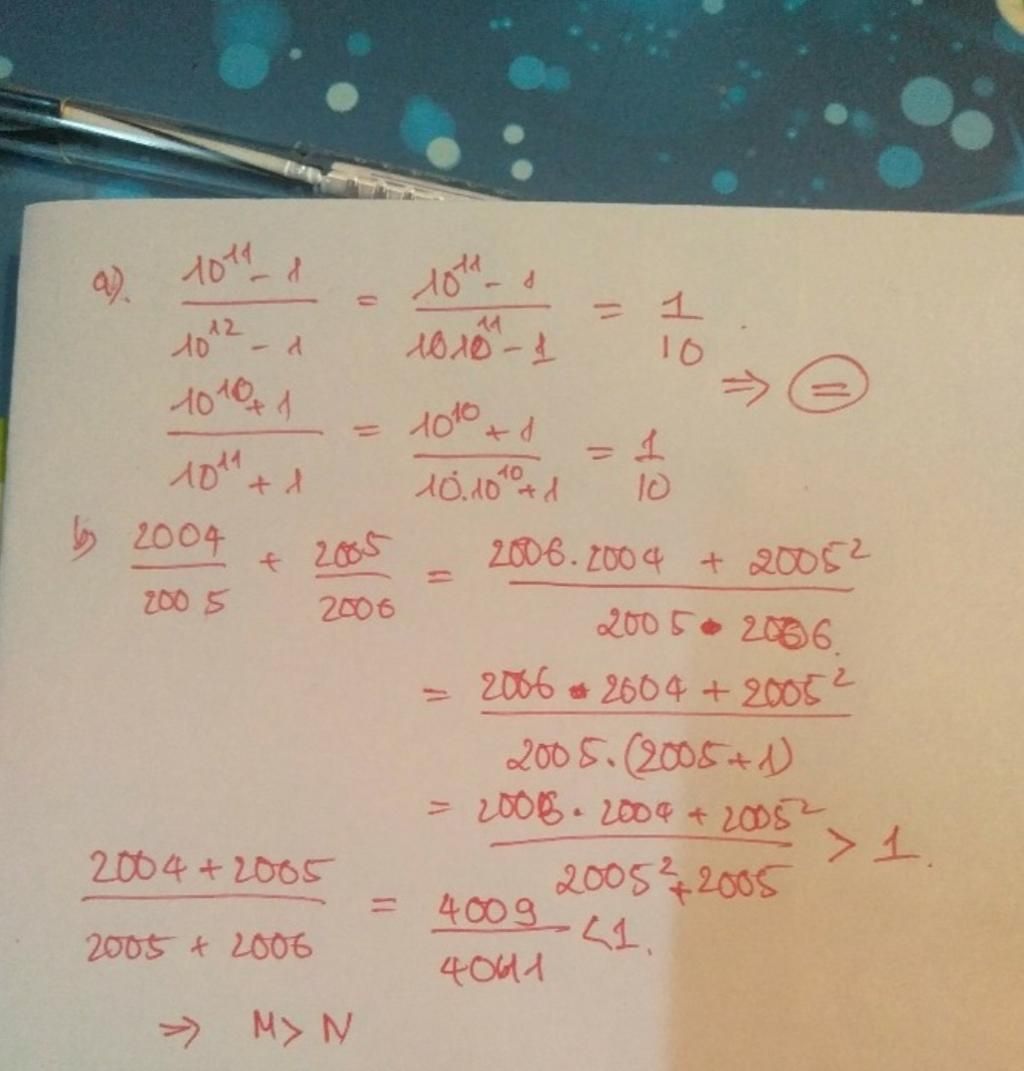 a). \frac{10^{11} - 1}{10^{12} - 1} = \frac{10^{11} - 1}{10 10^{11} - 1} = \frac{1}{10}.
\frac{10^{10} + 1}{10^{11} + 1} = \frac{10^{10} + 1}{10.10^{10} + 1} = \frac{1}{10} ⇒ =
b) \frac{2004}{2005} + \frac{2005}{2006} = \frac{2006.2004 + 2005^2}{2005 . 2006}.
= \frac{2006 . 2004 + 2005^2}{2005.(2005+1)}
= \frac{2006 . 2004 + 2005^2}{2005^2 + 2005} > 1.
\frac{2004 + 2005}{2005 + 2006} = \frac{4009}{4011} < 1.
⇒ M > N